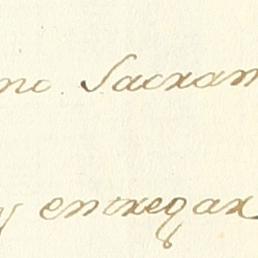 no. Sacram
y entregar